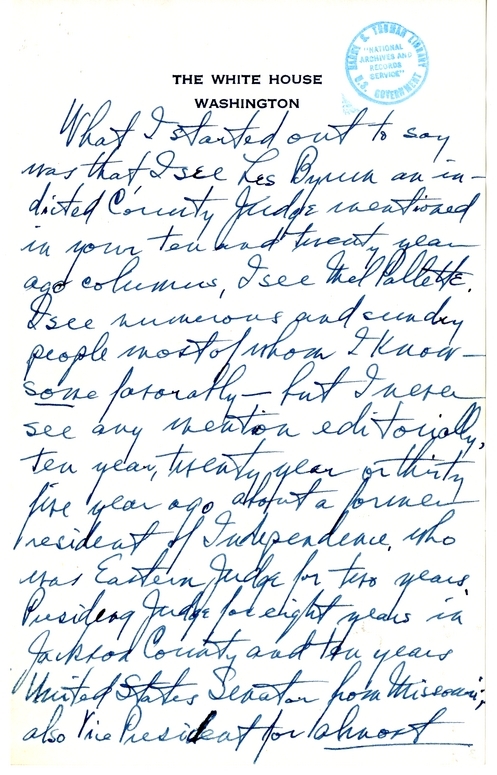 HARRY S. TRUMAN LIBRARY
"NATIONAL
ARCHIVES AND
RECORDS
SERVICE"
U.S. GOVERNMENT
THE WHITE HOUSE
WASHINGTON
What I started out to say
was that, I see Les Byrum an in-
dicted County Judge mentioned
in your ten and twenty year
ago columns, I see Mel Pallette.
I see numerous and sundry
people most of whom I know—
some favorably— but I never
see any mention editorially,
ten year, twenty year or thirty
five year ago about a former
resident of Independence, who
was Eastern Judge for two years,
Presiding Judge for eight years in
Jackson County and ten years
United States Senator from Missouri,
also Vice President for almost